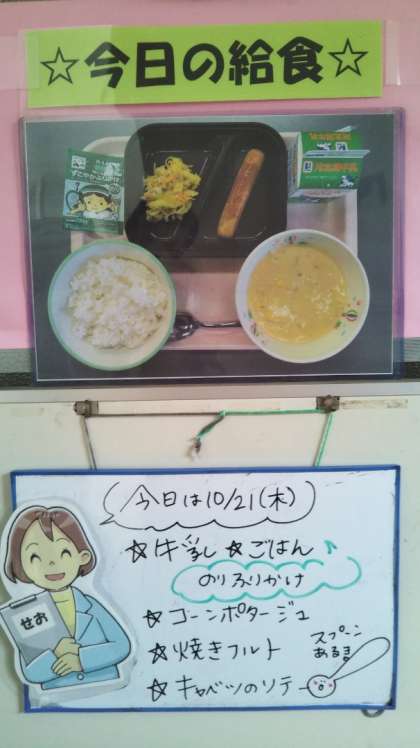 ☆今日の給食☆
今日は10/21(木)
☆牛乳 ☆ごはん♪
のりふりかけ
☆コーンポタージュ
☆焼きフルト
スプーン
あるま
☆キャベツのソテー
せお